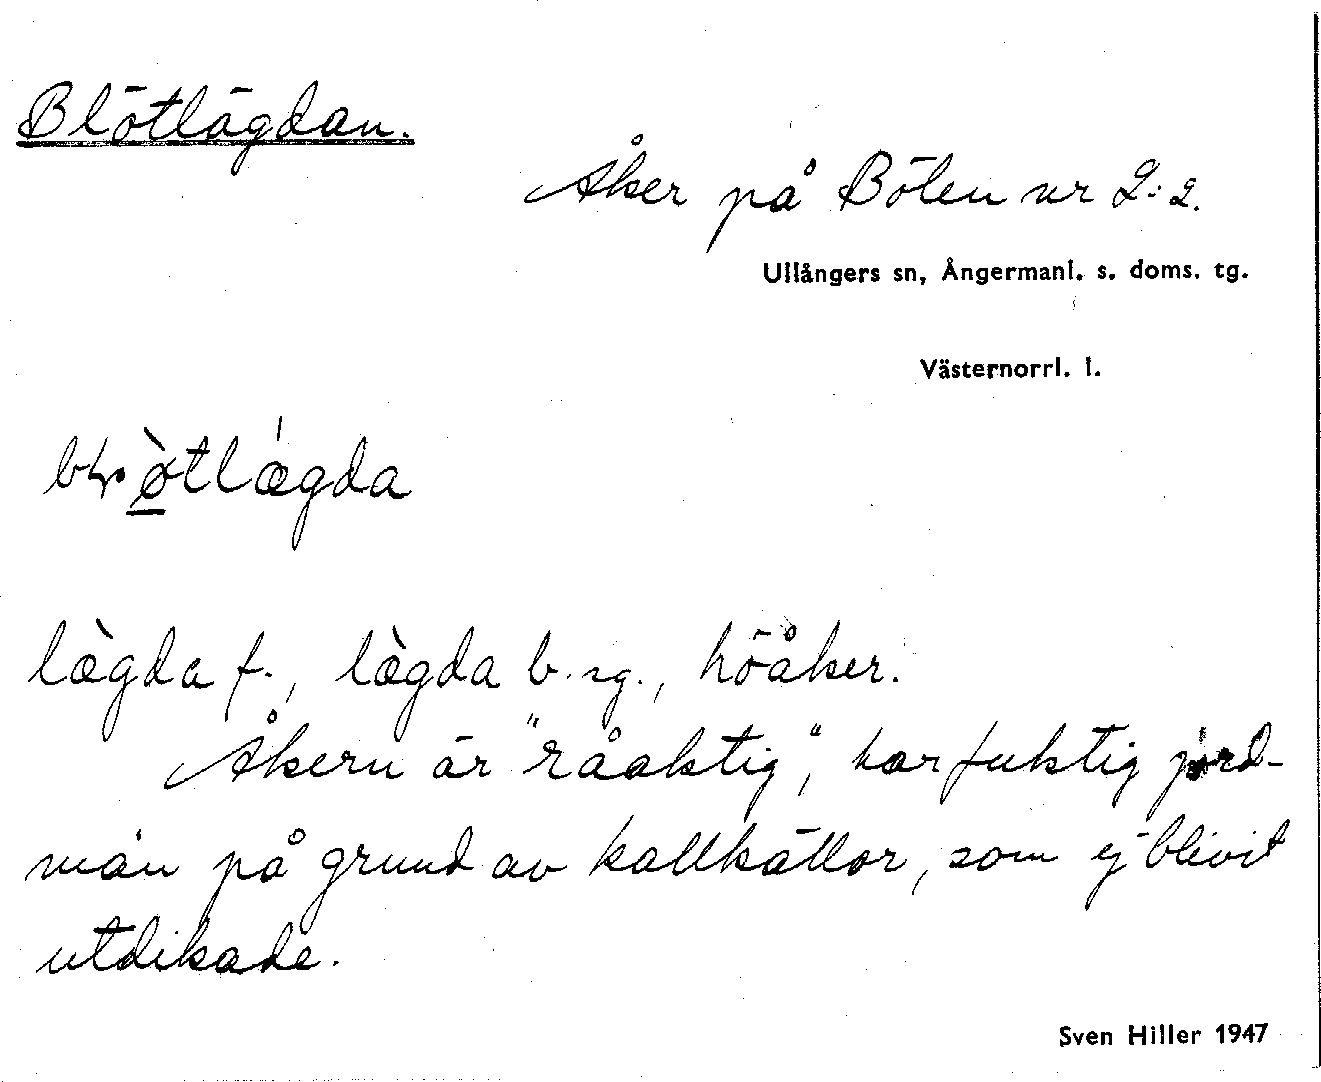 Blötlägdan.
Åker på Bölen nr 2:2.
Ullångers sn, Ångermanl. s. doms. tg.
Västernorrl. l.
lægda f., lægda b. sg., höåker.
Åkern är "råaktig", har fuktig jord-
mån på grund av kallkällor, som ej blivit
utdikade.
Sven Hiller 1947